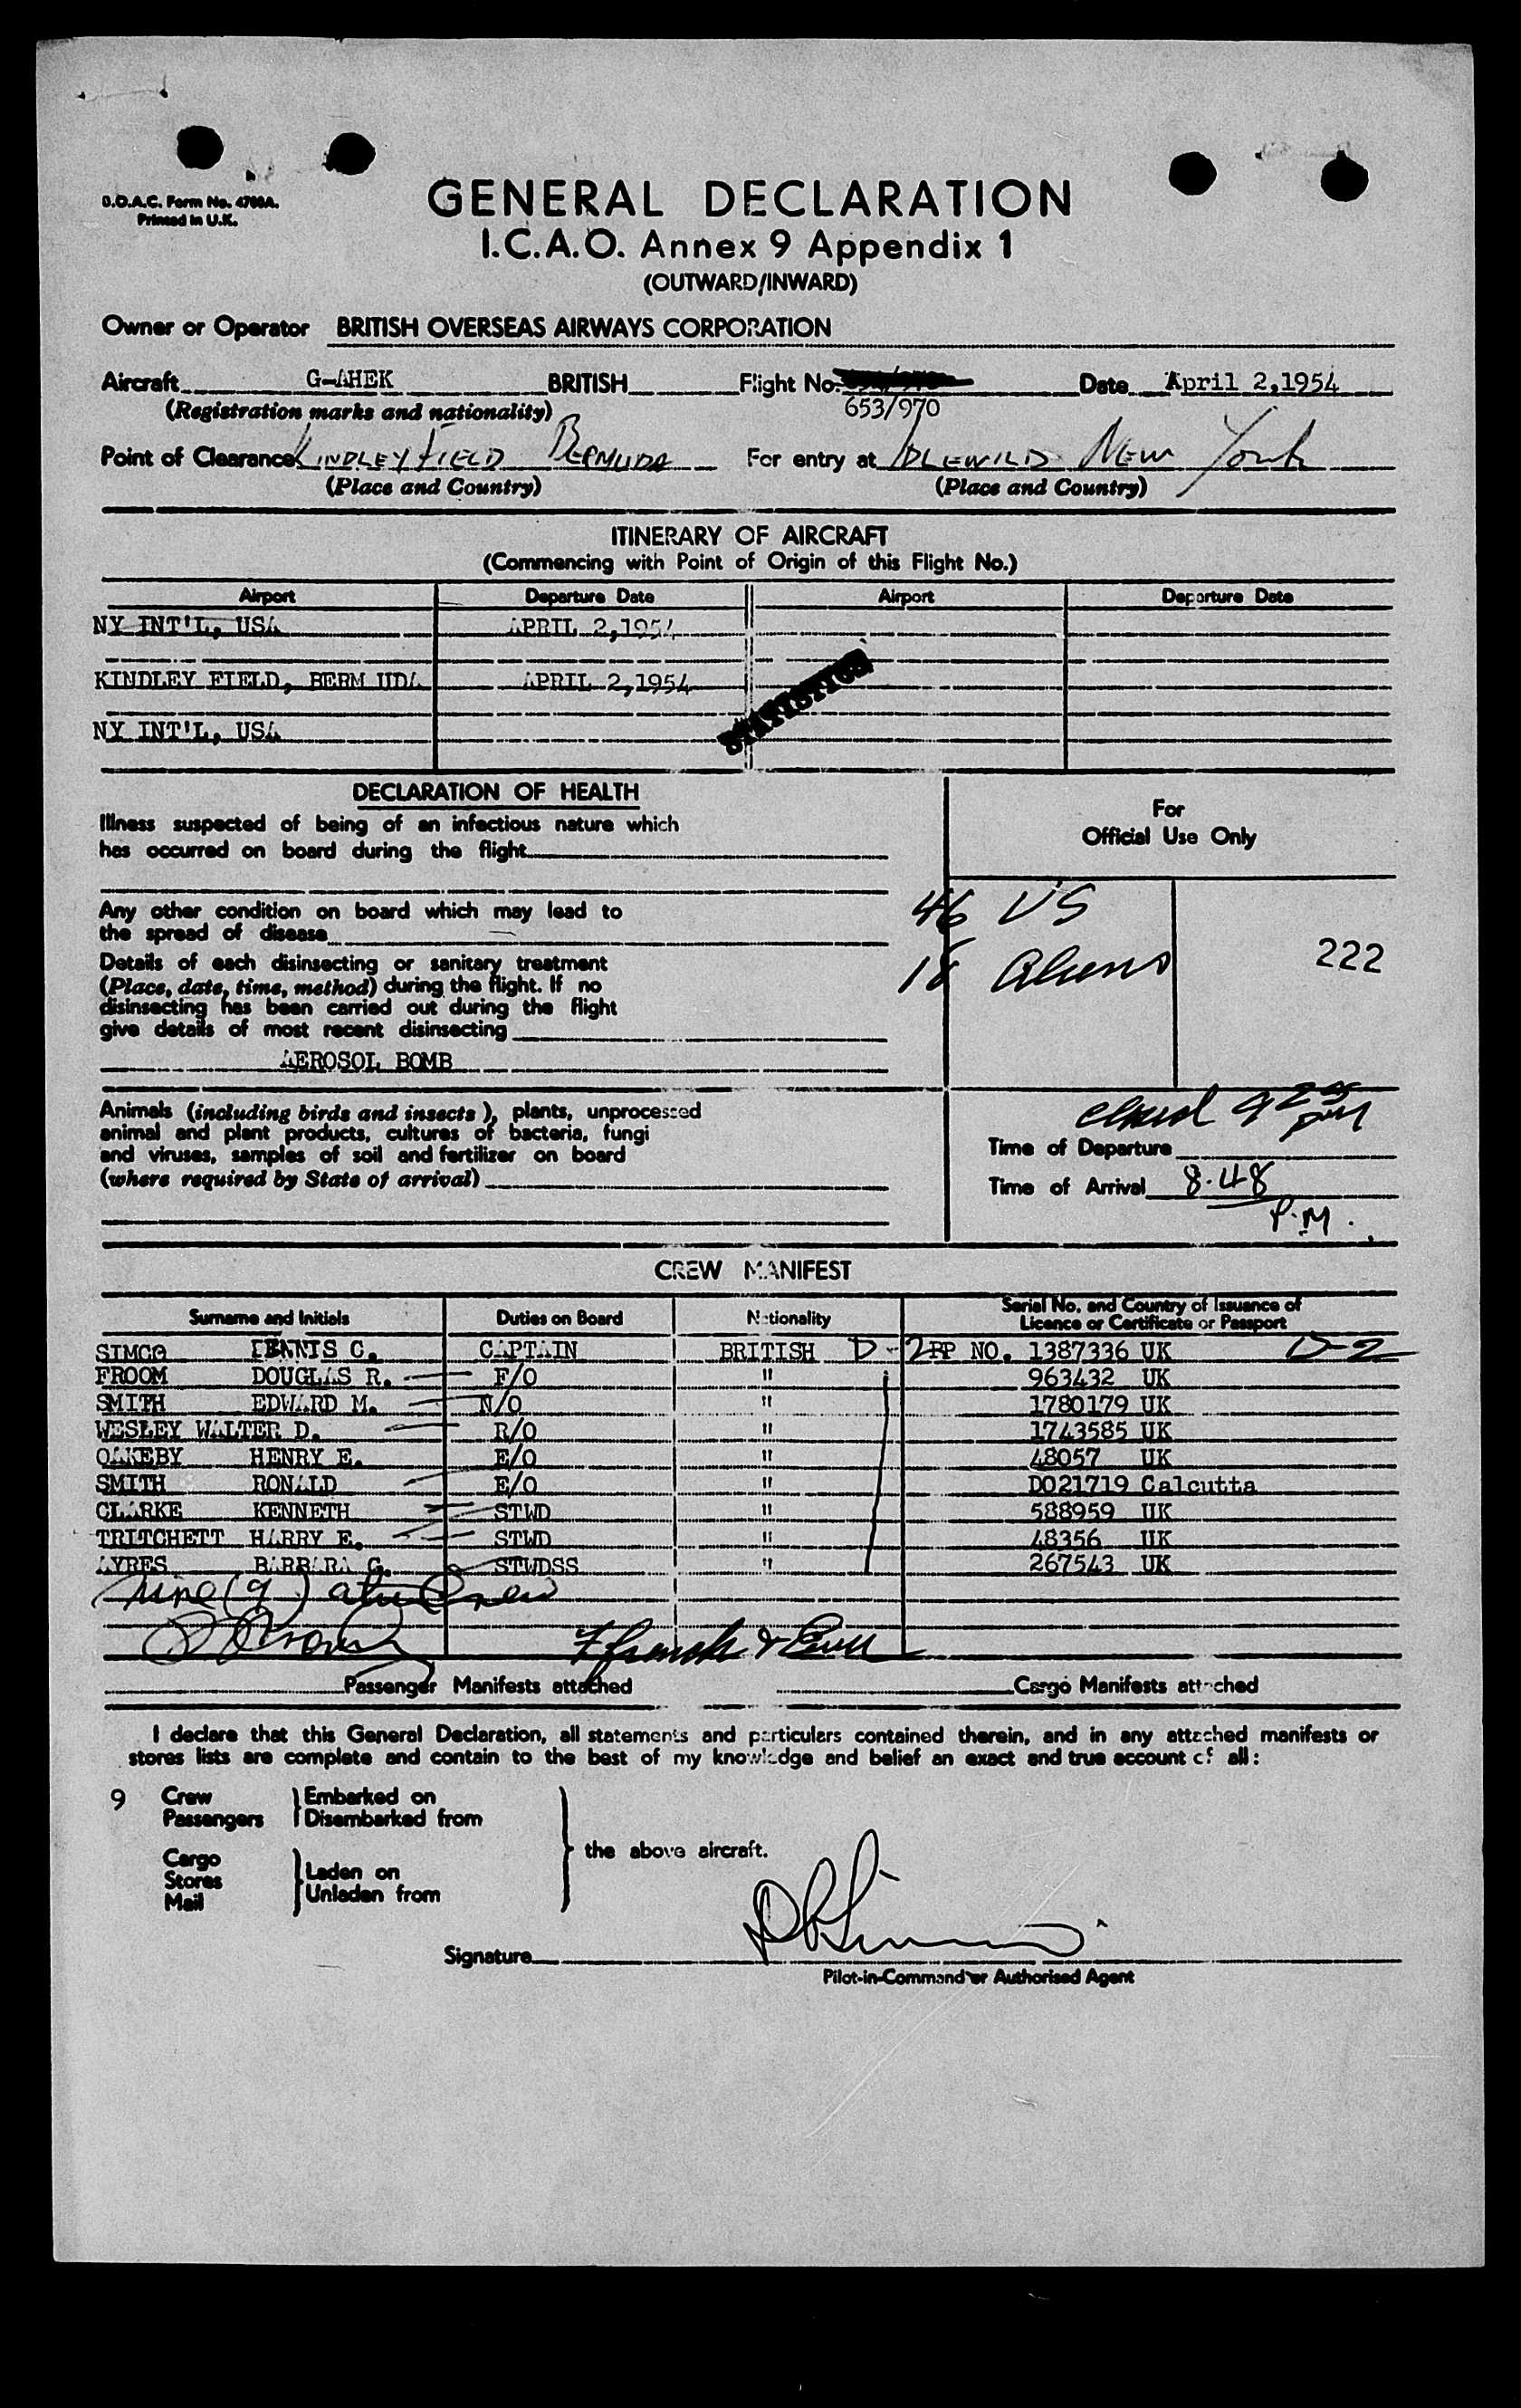 B.O.A.C. Form No. 4700A.
Printed in U.K.
GENERAL DECLARATION
I.C.A.O. Annex 9 Appendix 1
(OUTWARD/INWARD)
Owner or Operator BRITISH OVERSEAS AIRWAYS CORPORATION
Aircraft G-AHEK BRITISH Flight No. Date April 2,1954
(Registration marks and nationality) 653/970
Point of Clearance KINDLEY FIELD BERMUDA For entry at IDLEWILD New York
(Place and Country) (Place and Country)
ITINERARY OF AIRCRAFT
(Commencing with Point of Origin of this Flight No.)
Airport Departure Date Airport Departure Date
NY INT'L, USA APRIL 2,1954
KINDLEY FIELD, BERM UDA APRIL 2,1954
STATISTICS
NY INT'L, USA
DECLARATION OF HEALTH
Illness suspected of being of an infectious nature which
has occurred on board during the flight
Any other condition on board which may lead to
the spread of disease
Details of each disinsecting or sanitary treatment
(Place, date, time, method) during the flight. If no
disinsecting has been carried out during the flight
give details of most recent disinsecting
AEROSOL BOMB
Animals (including birds and insects), plants, unprocessed
animal and plant products, cultures of bacteria, fungi
and viruses, samples of soil and fertilizer on board
(where required by State of arrival)
For
Official Use Only
46 US
18 Aliens
222
Time of Departure
Time of Arrival 8.48
P.M.
CREW MANIFEST
Surname and Initials Duties on Board Nationality Serial No. and Country of Issuance of
Licence or Certificate or Passport
SIMCO DENNIS C. CAPTAIN BRITISH D-2 PP NO. 1387336 UK D-2
FROOM DOUGLAS R. F/O " 963432 UK
SMITH EDWARD M. N/O " 1780179 UK
WESLEY WALTER D. R/O " 1743585 UK
OAKEBY HENRY E. E/O " 48057 UK
SMITH RONALD E/O " D021719 Calcutta
CLARKE KENNETH STWD " 588959 UK
TRITCHETT HARRY E. STWD " 48356 UK
AYRES BARBARA G. STWDSS " 267543 UK
Nine (9) alien Crew
Passenger Manifests attached Cargo Manifests attached
I declare that this General Declaration, all statements and particulars contained therein, and in any attached manifests or
stores lists are complete and contain to the best of my knowledge and belief an exact and true account of all:
9 Crew Embarked on
Passengers Disembarked from
the above aircraft.
Cargo
Stores Laden on
Mail Unladen from
Signature
Pilot-in-Command or Authorised Agent